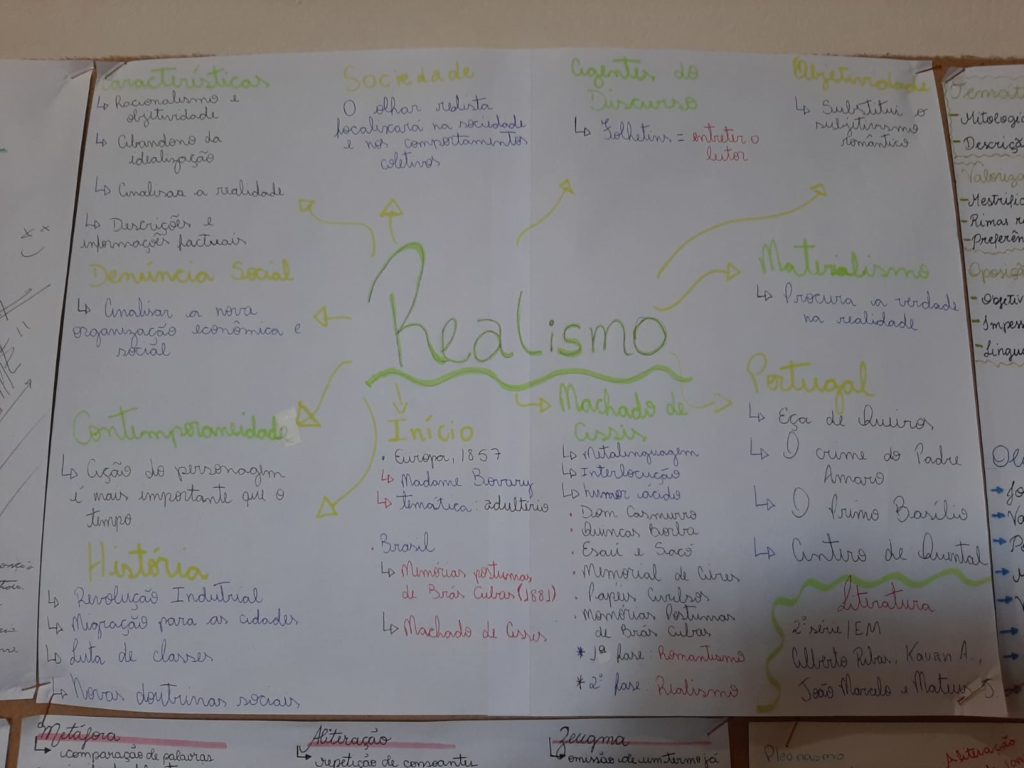 Características
↳ Racionalismo e
objetividade
↳ Abandono da
idealização
↳ Analisaa a realidade
↳ Descrições e
informações factuais
Sociedade
O olhar realista
focalizará na sociedade
e nos comportamentos
coletivos
Agentes do
Discurso
↳ Folhetins = entreter o
leitor
Objetividade
↳ Substitui o
subjetivismo
romântico
Denúncia Social
↳ Analisar a nova
organização econômica e
social
Realismo
Materialismo
↳ Procura a verdade
na realidade
Contemporaneidade
↳ Ação do personagem
é mais importante que o
tempo
Início
• Europa, 1857
↳ Madame Bovary
↳ Temática: adultério
• Brasil
↳ Memórias postumas
de Brás Cubas (1881)
↳ Machado de Assis
Machado de
Assis
↳ Metalinguagem
↳ Interlocução
↳ humor ácido
• Dom Casmurro
• Quincas Borba
• Esaú e Jacó
• Memorial de Aires
• Papéis Avulsos
• Memórias Postumas
de Brás Cubas
* 1ª fase: Romantismo
* 2ª fase: Realismo
Portugal
↳ Eça de Queiros
↳ O crime do Padre
Amaro
↳ O Primo Basílio
↳ Antero de Quental
História
↳ Revolução Indutrial
↳ Migração para as cidades
↳ Luta de classes
↳ Novas doutrinas sociais
Literatura
2ª série/EM
Gilberto Ribas, Kauan A.,
João Marcelo e Mateus J.
Temát
- Mitologia
- Descriçã
Valoriza
- Mestrific
- Rimas r
- Preferên
Oposiçã
- Objetiv
- Impess
- Lingua
Metáfora
↳ comparação de palavras
Aliteração
↳ repetição de consoantes
Zeugma
↳ omissão de um termo já
Pleonasmo
Aliteração